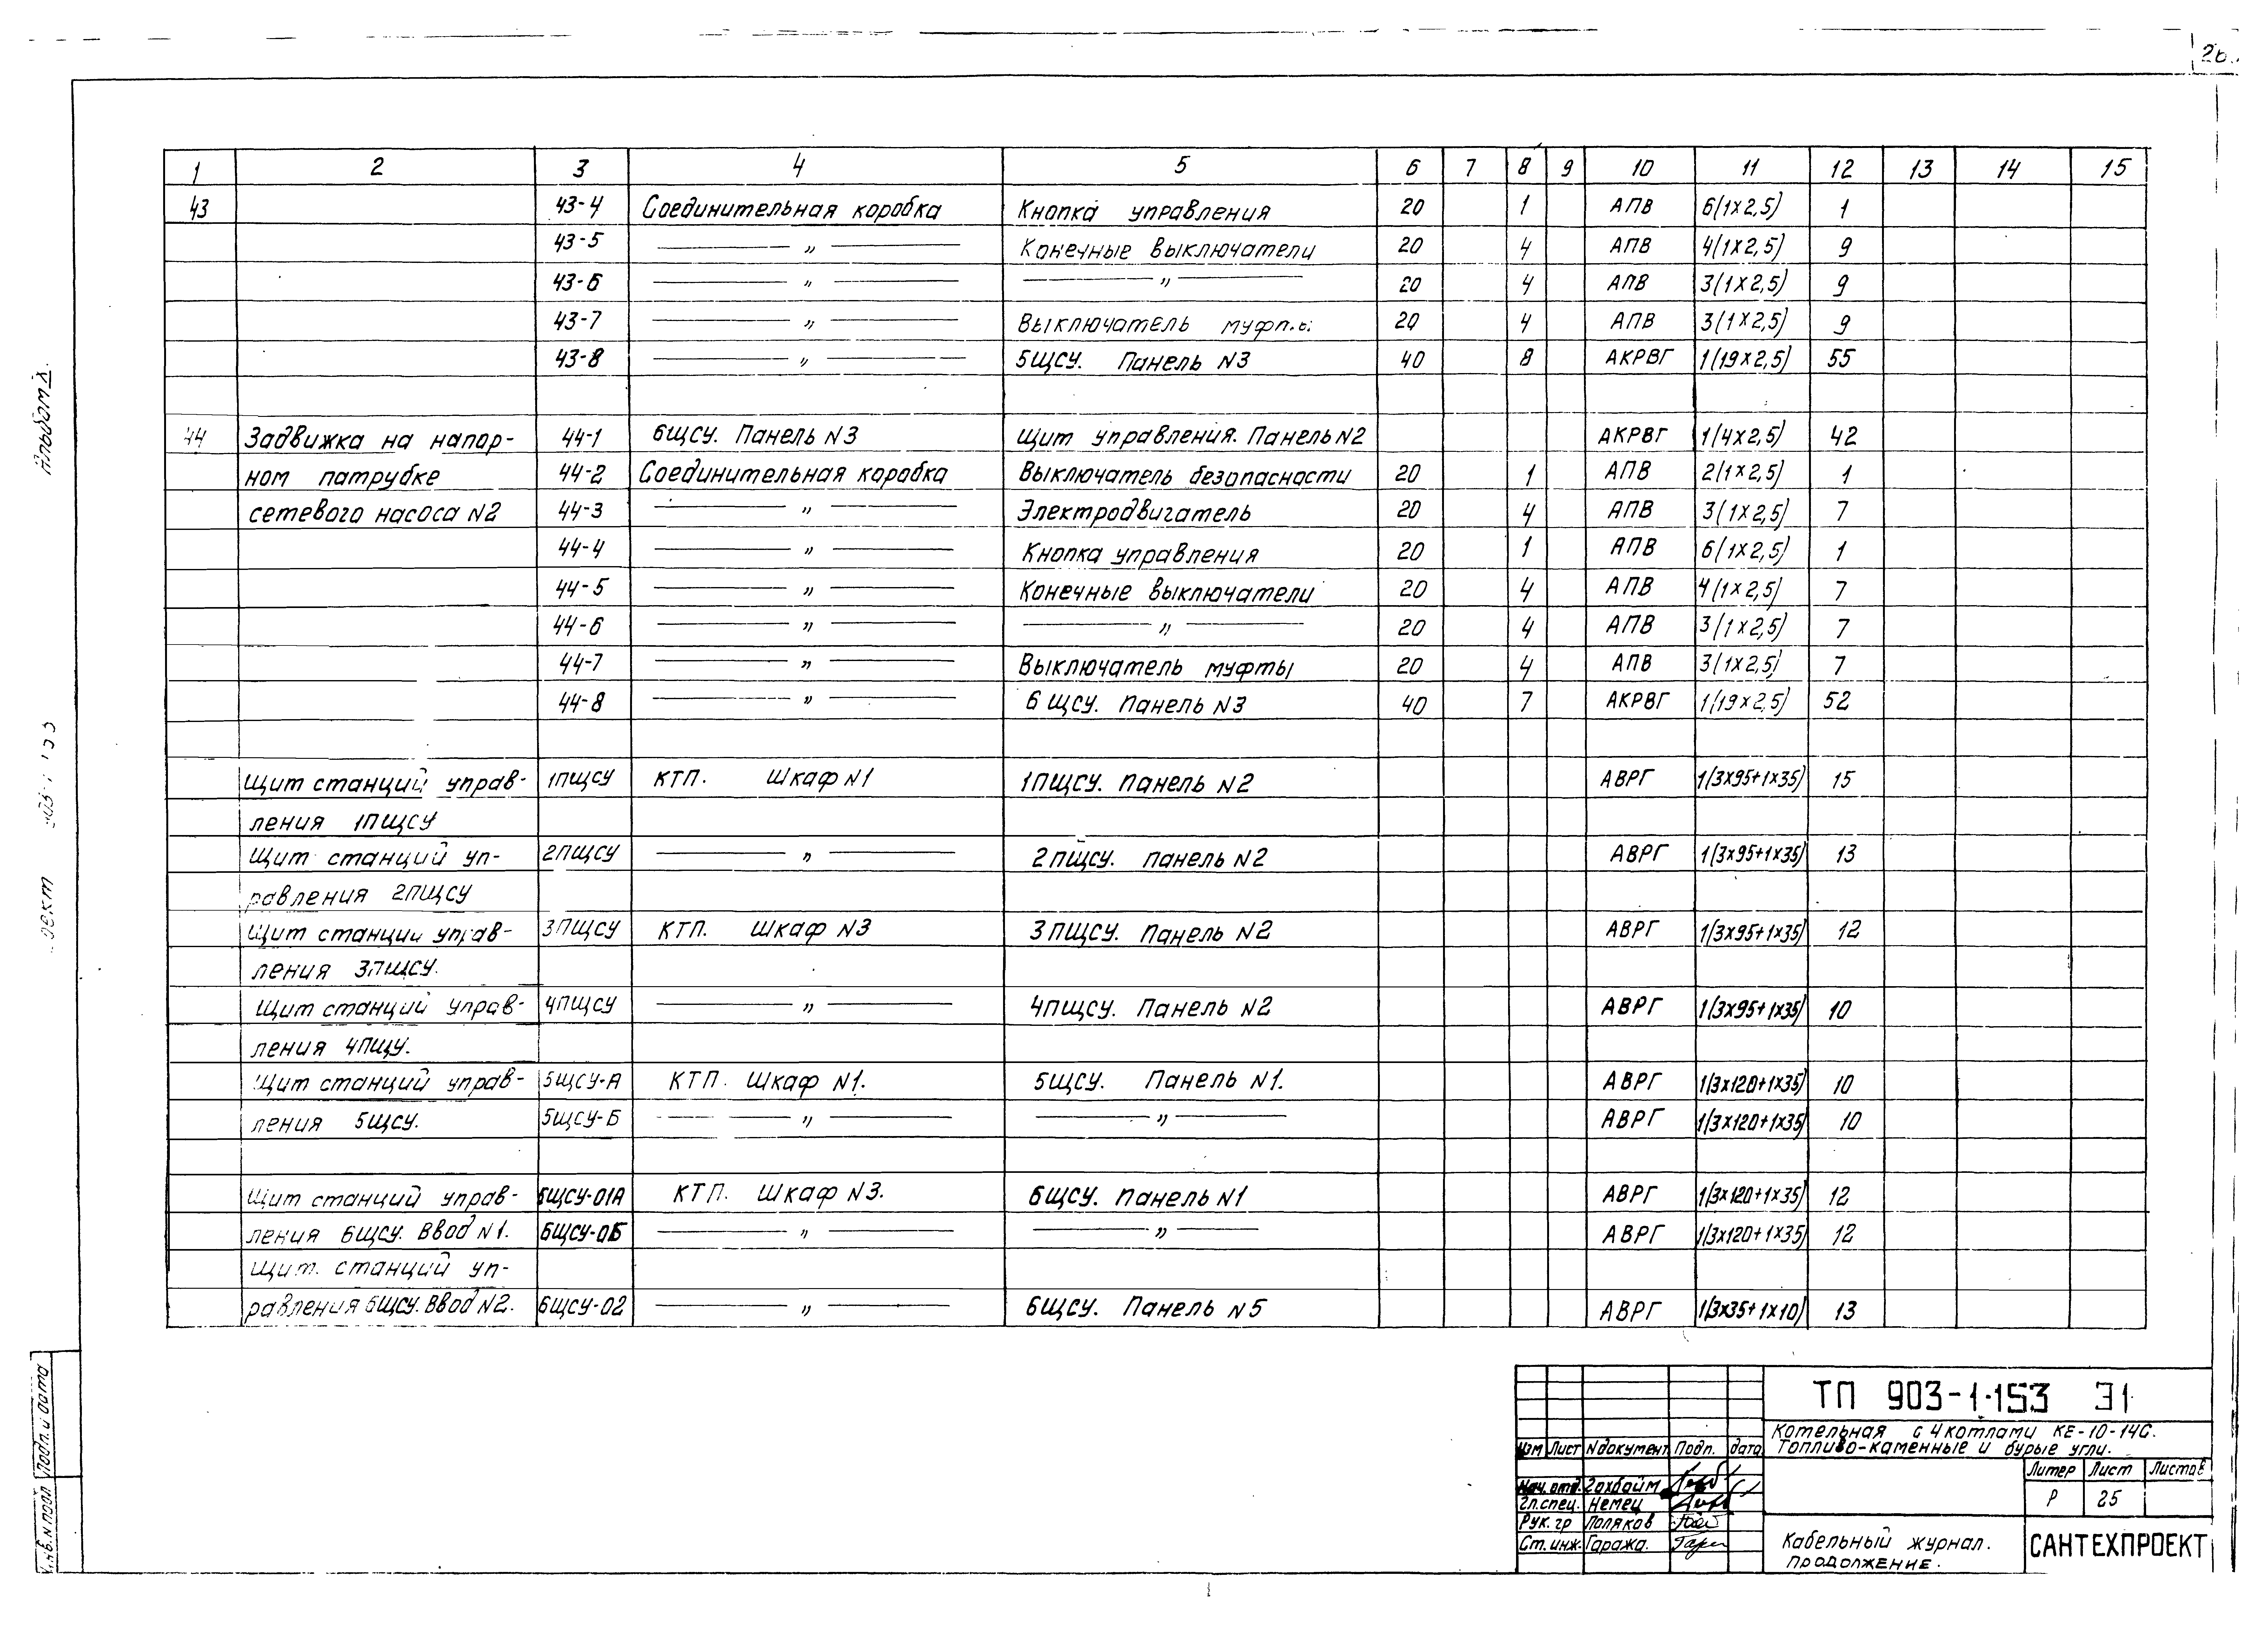 26
1 2 3 4 5 6 7 8 9 10 11 12 13 14 15
43 43-4 Соединительная коробка Кнопка управления 20 1 АПВ 6(1х2,5) 1
43-5 — " — Конечные выключатели 20 4 АПВ 4(1х2,5) 9
43-6 — " — — " — 20 4 АПВ 3(1х2,5) 9
43-7 — " — Выключатель 20 4 АПВ 3(1х2,5) 9
43-8 — " — 5ЩСУ. Панель N3 40 8 АКРВГ 1(19х2,5) 55
44 Задвижка на напор- 44-1 6ЩСУ. Панель N3 Щит управления. Панель N2 АКРВГ 1(4х2,5) 42
ном патрубке 44-2 Соединительная коробка Выключатель безопасности 20 1 АПВ 2(1х2,5) 1
сетевого насоса N2 44-3 — " — Электродвигатель 20 4 АПВ 3(1х2,5) 7
44-4 — " — Кнопка управления 20 1 АПВ 6(1х2,5) 1
44-5 — " — Конечные выключатели 20 4 АПВ 4(1х2,5) 7
44-6 — " — — " — 20 4 АПВ 3(1х2,5) 7
44-7 — " — Выключатель муфты 20 4 АПВ 3(1х2,5) 7
44-8 — " — 6 ЩСУ. Панель N3 40 7 АКРВГ 1(19х2,5) 52
Щит станций управ- 1ПЩСУ КТП. Шкаф N1 1ПЩСУ. Панель N2 АВРГ 1(3х95+1х35) 15
ления 1ПЩСУ
Щит станций уп- 2ПЩСУ — " — 2ПЩСУ. Панель N2 АВРГ 1(3х95+1х35) 13
равления 2ПЩСУ
Щит станций управ- 3ПЩСУ КТП. Шкаф N3 3ПЩСУ. Панель N2 АВРГ 1(3х95+1х35) 12
ления 3ПЩСУ.
Щит станций управ- 4ПЩСУ — " — 4ПЩСУ. Панель N2 АВРГ 1(3х95+1х35) 10
ления 4ПЩУ.
Щит станций управ- 5ЩСУ-А КТП. Шкаф N1. 5ЩСУ. Панель N1. АВРГ 1(3х120+1х35) 10
ления 5ЩСУ. 5ЩСУ-Б — " — — " — АВРГ 1(3х120+1х35) 10
Щит станций управ- 6ЩСУ-01А КТП. Шкаф N3. 6ЩСУ. Панель N1 АВРГ 1(3х120+1х35) 12
ления 6ЩСУ. Ввод N1. 6ЩСУ-0Б — " — — " — АВРГ 1(3х120+1х35) 12
Щит. станций уп-
равления 6ЩСУ. Ввод N2. 6ЩСУ-02 — " — 6ЩСУ. Панель N5 АВРГ 1(3х35+1х10) 13
Альбом
Подп. и дата
Инв. N подл
ТП 903-1-153 Э1
Котельная с 4 котлами КЕ-10-14С.
Топливо-каменные и бурые угли.
Изм Лист N документ Подп. дата
Нач. отд.
Гл. спец. Немец
Рук. гр Поляков
Ст. инж. Гаража.
Литер Лист Листов
Р 25
Кабельный журнал.
продолжение.
САНТЕХПРОЕКТ